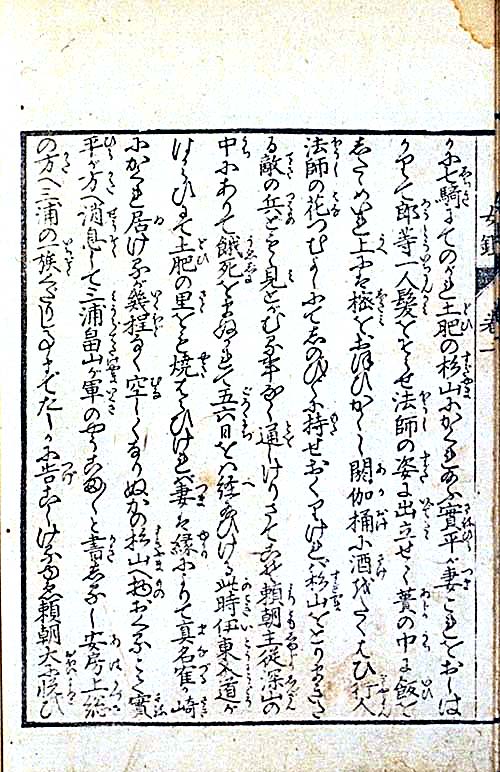 に七騎にてのがれ土肥の杉山にかくれあふ實平が妻これをおしは
かりて郎等一人髪をそらせ法師の姿に出立せて簣の中に飯を
したゝめ入れ上に樒をおほひかくし閼伽桶に酒をたくはひ行人
法師の花つむよしにてしのびやかに持せおくりければ杉山をとりまきた
る敵の兵ども見とがむる事なく通しけりさてこそ頼朝主従深山の
中にありて餓死をまぬかれて五六日をば経給ひける此時伊東入道が
はからひにて土肥の里をも焼はらひければ妻は縁によりて真名鶴が崎
にかくれ居けるが幾程なく空しくなりぬかの杉山へ物おくるごとに實
平が方へ消息して三浦畠山が軍のやうすこまごまと書しるし安房上総
の方へ三浦の一族くだりし事までたしかに告こしけるゆゑ頼朝大に悦び
女鏡 巻一